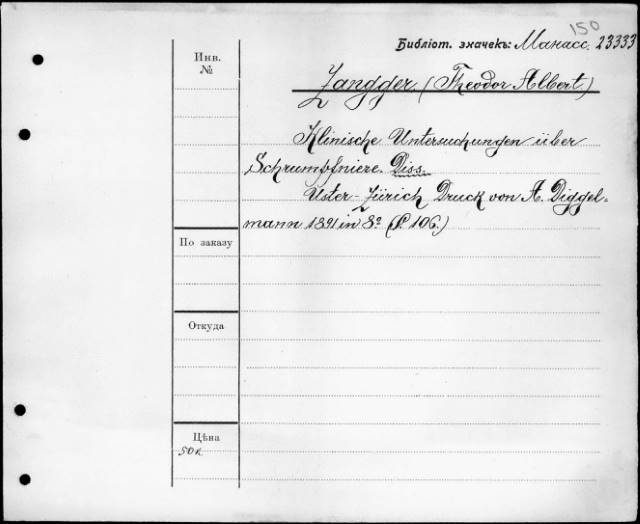 150
Библіот. значекъ: Манасс. 23333
Инв.
№
Zangger. (Theodor Albert.)
Klinische Untersuchungen über
Schrumpfniere. Diss.
Uster-Zürich Druck von A. Diggel-
mann 1891 in 8º (P. 106.)
По заказу
Откуда
Цѣна
50к.